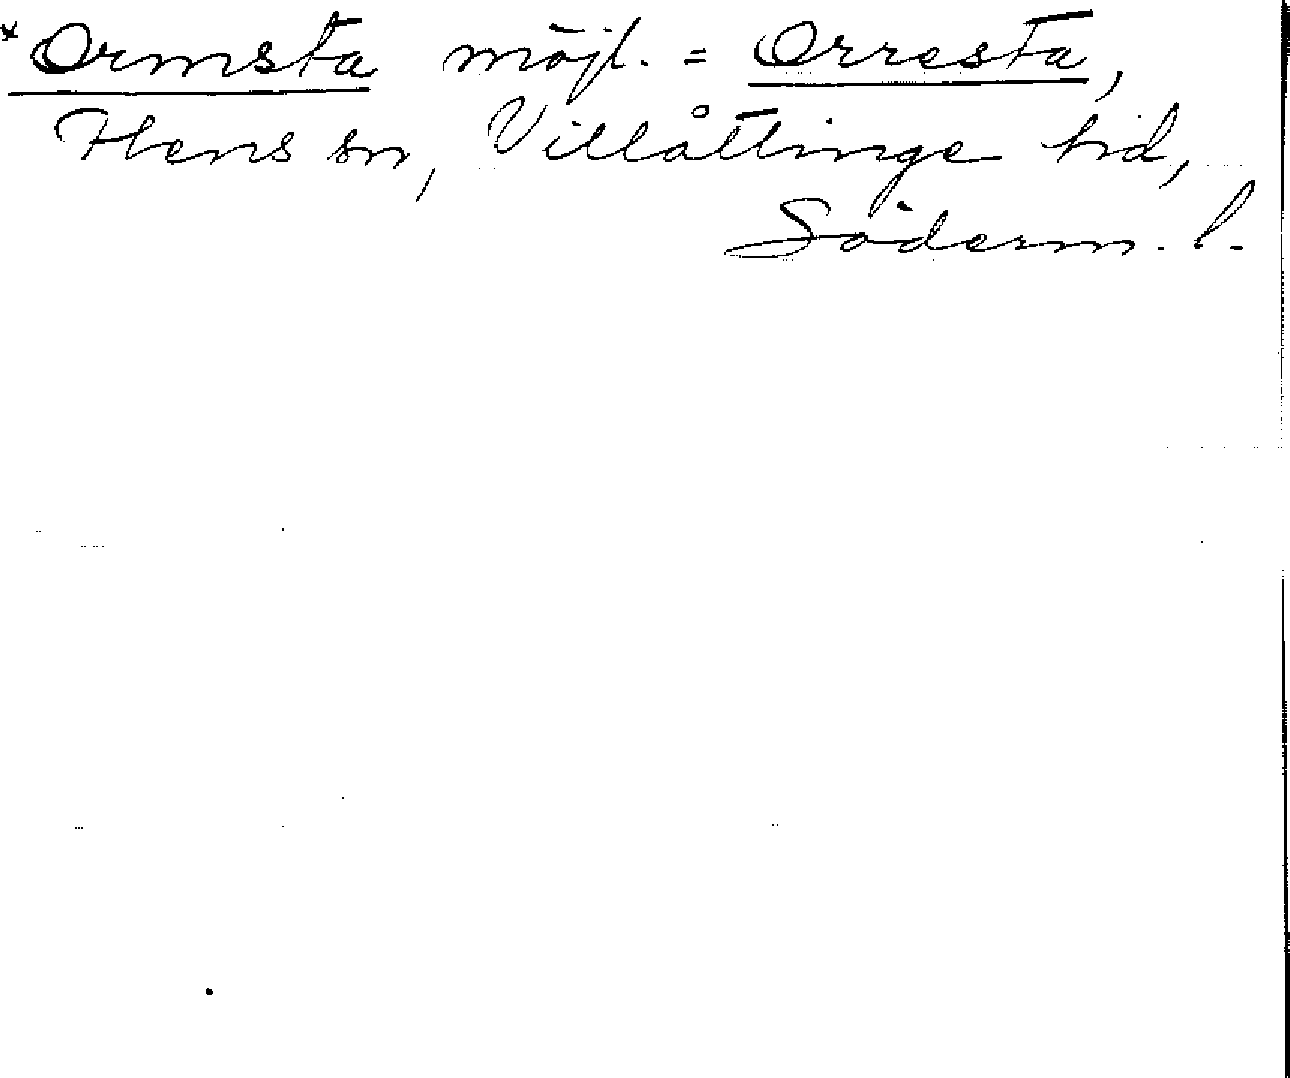 *Ormsta möjl. = Orresta,
Flens sn, Villåttinge hd,
Söderm. l.